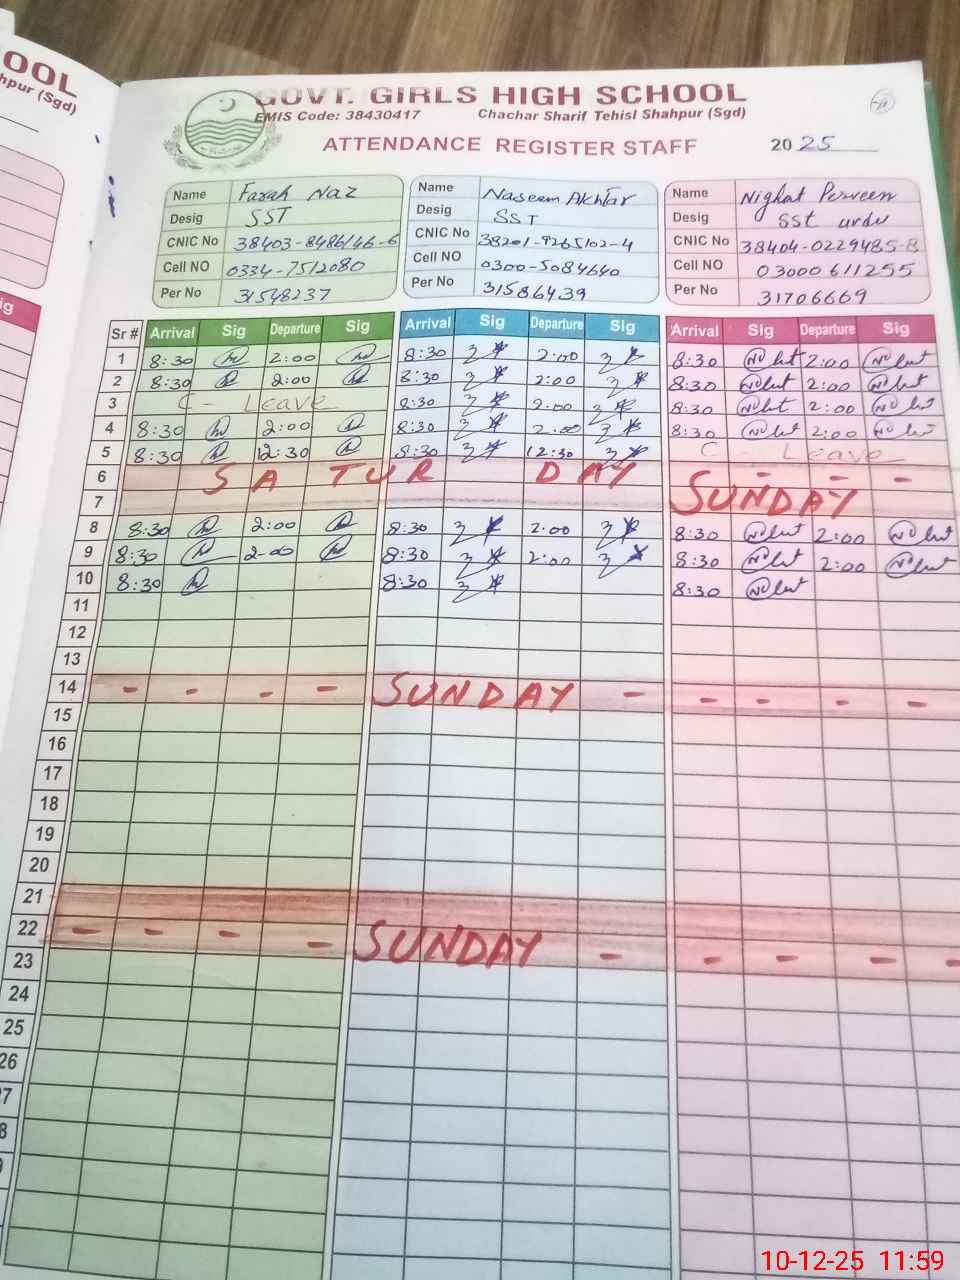 OOL
hpur (Sgd)
ig
GOVT. GIRLS HIGH SCHOOL
EMIS Code: 38430417 Chachar Sharif Tehisl Shahpur (Sgd)
ATTENDANCE REGISTER STAFF 2025
Name Farah Naz
Desig SST
CNIC No 38403-8486146-6
Cell NO 0334-7512080
Per No 31548237
Name Naseem Akhtar
Desig SST
CNIC No 38201-9265102-4
Cell NO 0300-5084640
Per No 31586439
Name Nighat Perveen
Desig SSt urdu
CNIC No 38404-0229485-8
Cell NO 03000611255
Per No 31706669
Sr # Arrival Sig Departure Sig Arrival Sig Departure Sig Arrival Sig Departure Sig
1 8:30 2:00 8:30 2:00 8:30 2:00
2 8:30 2:00 8:30 2:00 8:30 2:00
3 C - Leave 8:30 2:00 8:30 2:00
4 8:30 2:00 8:30 2:00 8:30 2:00
5 8:30 12:30 8:30 12:30 C - Leave
6 SATURDAY - - -
7 SUNDAY
8 8:30 2:00 8:30 2:00 8:30 2:00
9 8:30 2:00 8:30 2:00 8:30 2:00
10 8:30 8:30 8:30
11
12
13
14 - - - - SUNDAY - - - - -
15
16
17
18
19
20
21
22 - - - - SUNDAY - - - - -
23
24
25
26
7
8
9
10-12-25 11:59